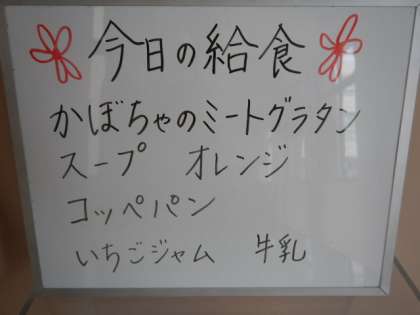 今日の給食
かぼちゃのミートグラタン
スープ オレンジ
コッペパン
いちごジャム 牛乳